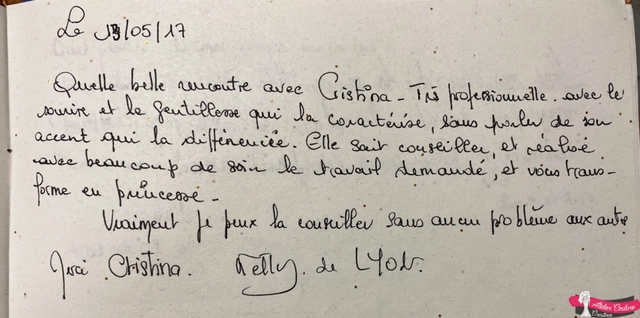 Le 13/05/17
Quelle belle rencontre avec Cristina - Très professionnelle. avec le
sourire et la gentillesse qui la caractérise, sans parler de son
accent qui la différenciée. Elle sait conseiller, et réalisé
avec beaucoup de soin le travail demandé, et vous trans-
forme en princesse -
Vraiment je peux la conseiller sans aucun problème aux autres
Cristina. Nelly. de LYON.
Atelier Couture